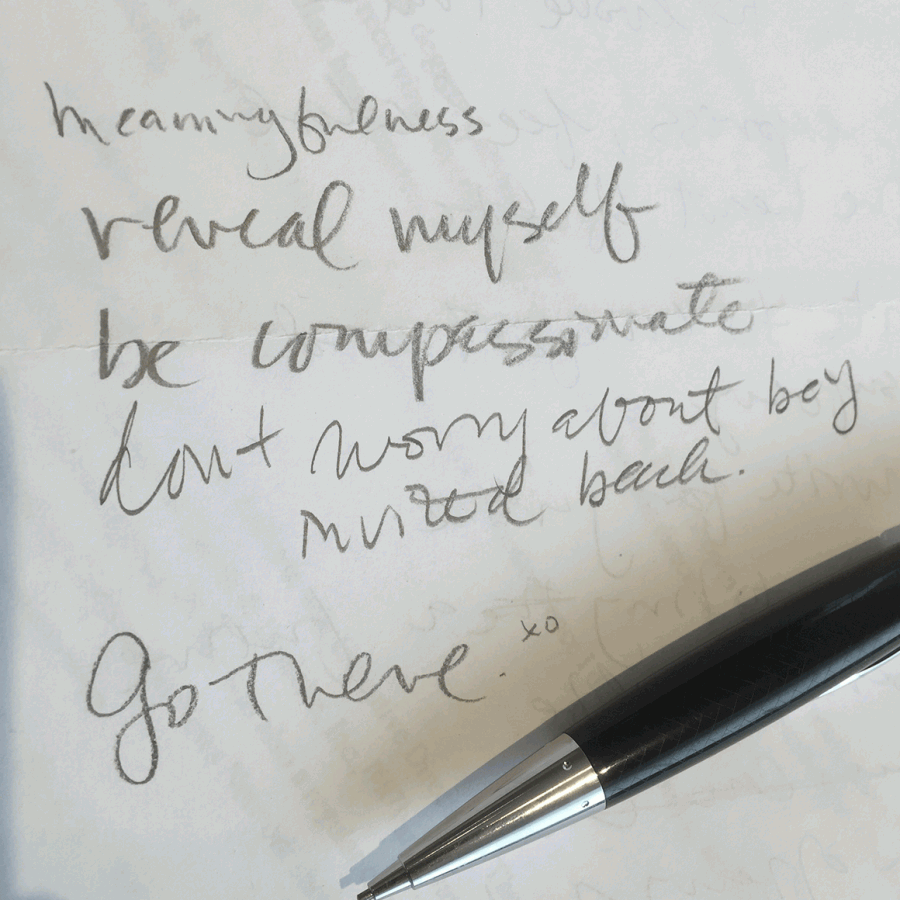 meaningfulness
reveal myself
be compassionate
don't worry about being
invited back.
Go there. xo